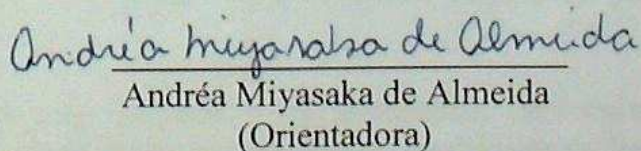 Andréa Miyasaka de Almeida
Andréa Miyasaka de Almeida
(Orientadora)